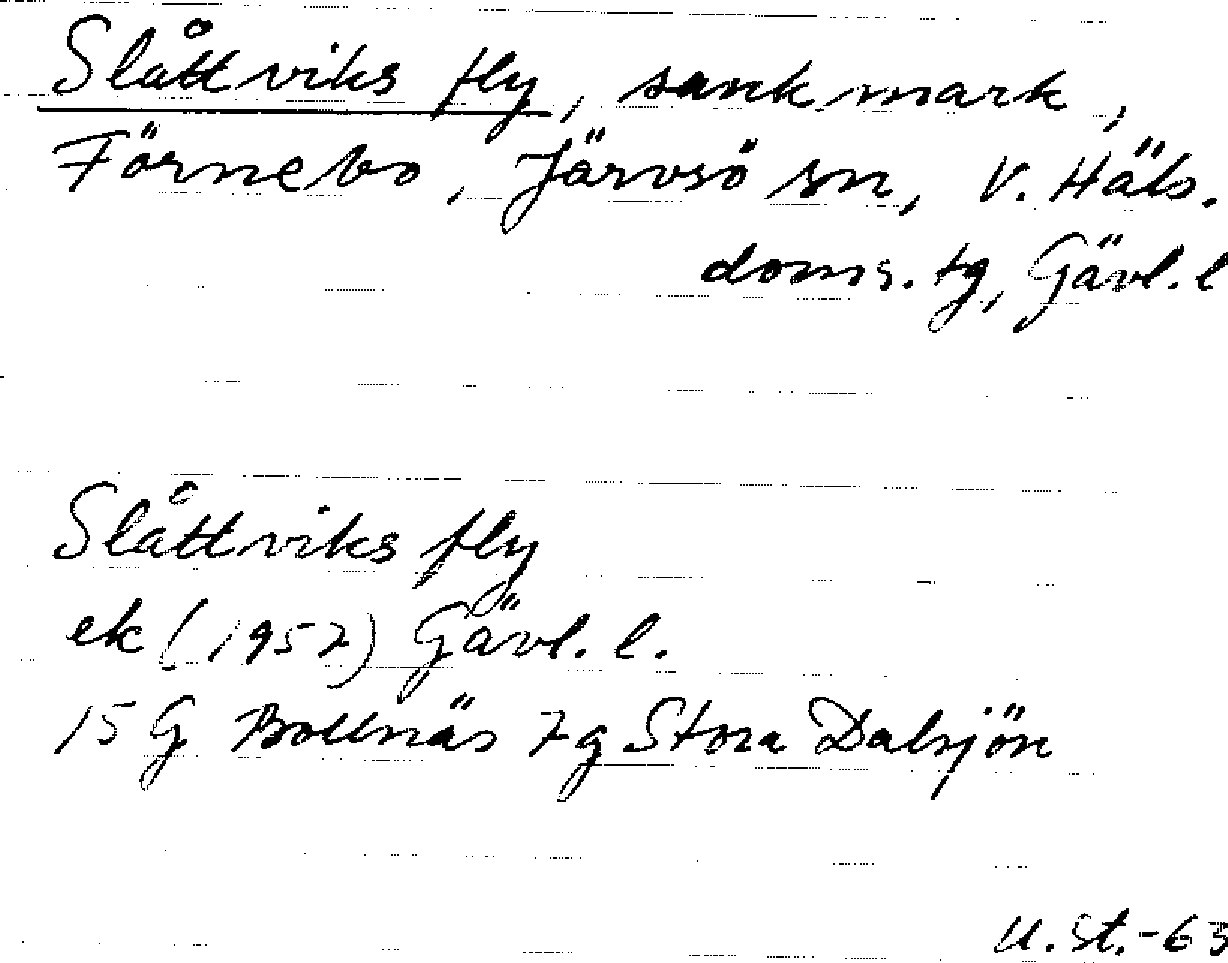 Slåttviks fly, sankmark,
Förnebo, Järvsö sn, V. Häls.
doms.tg, Gävl.l
Slåttviks fly
ek (1957) Gävl. l.
15 G Bollnäs 7g Stora Dalsjön
U.St.-63